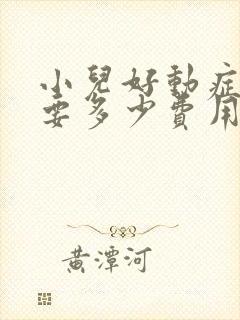 小兒好動症
要多少費用
黃潭河